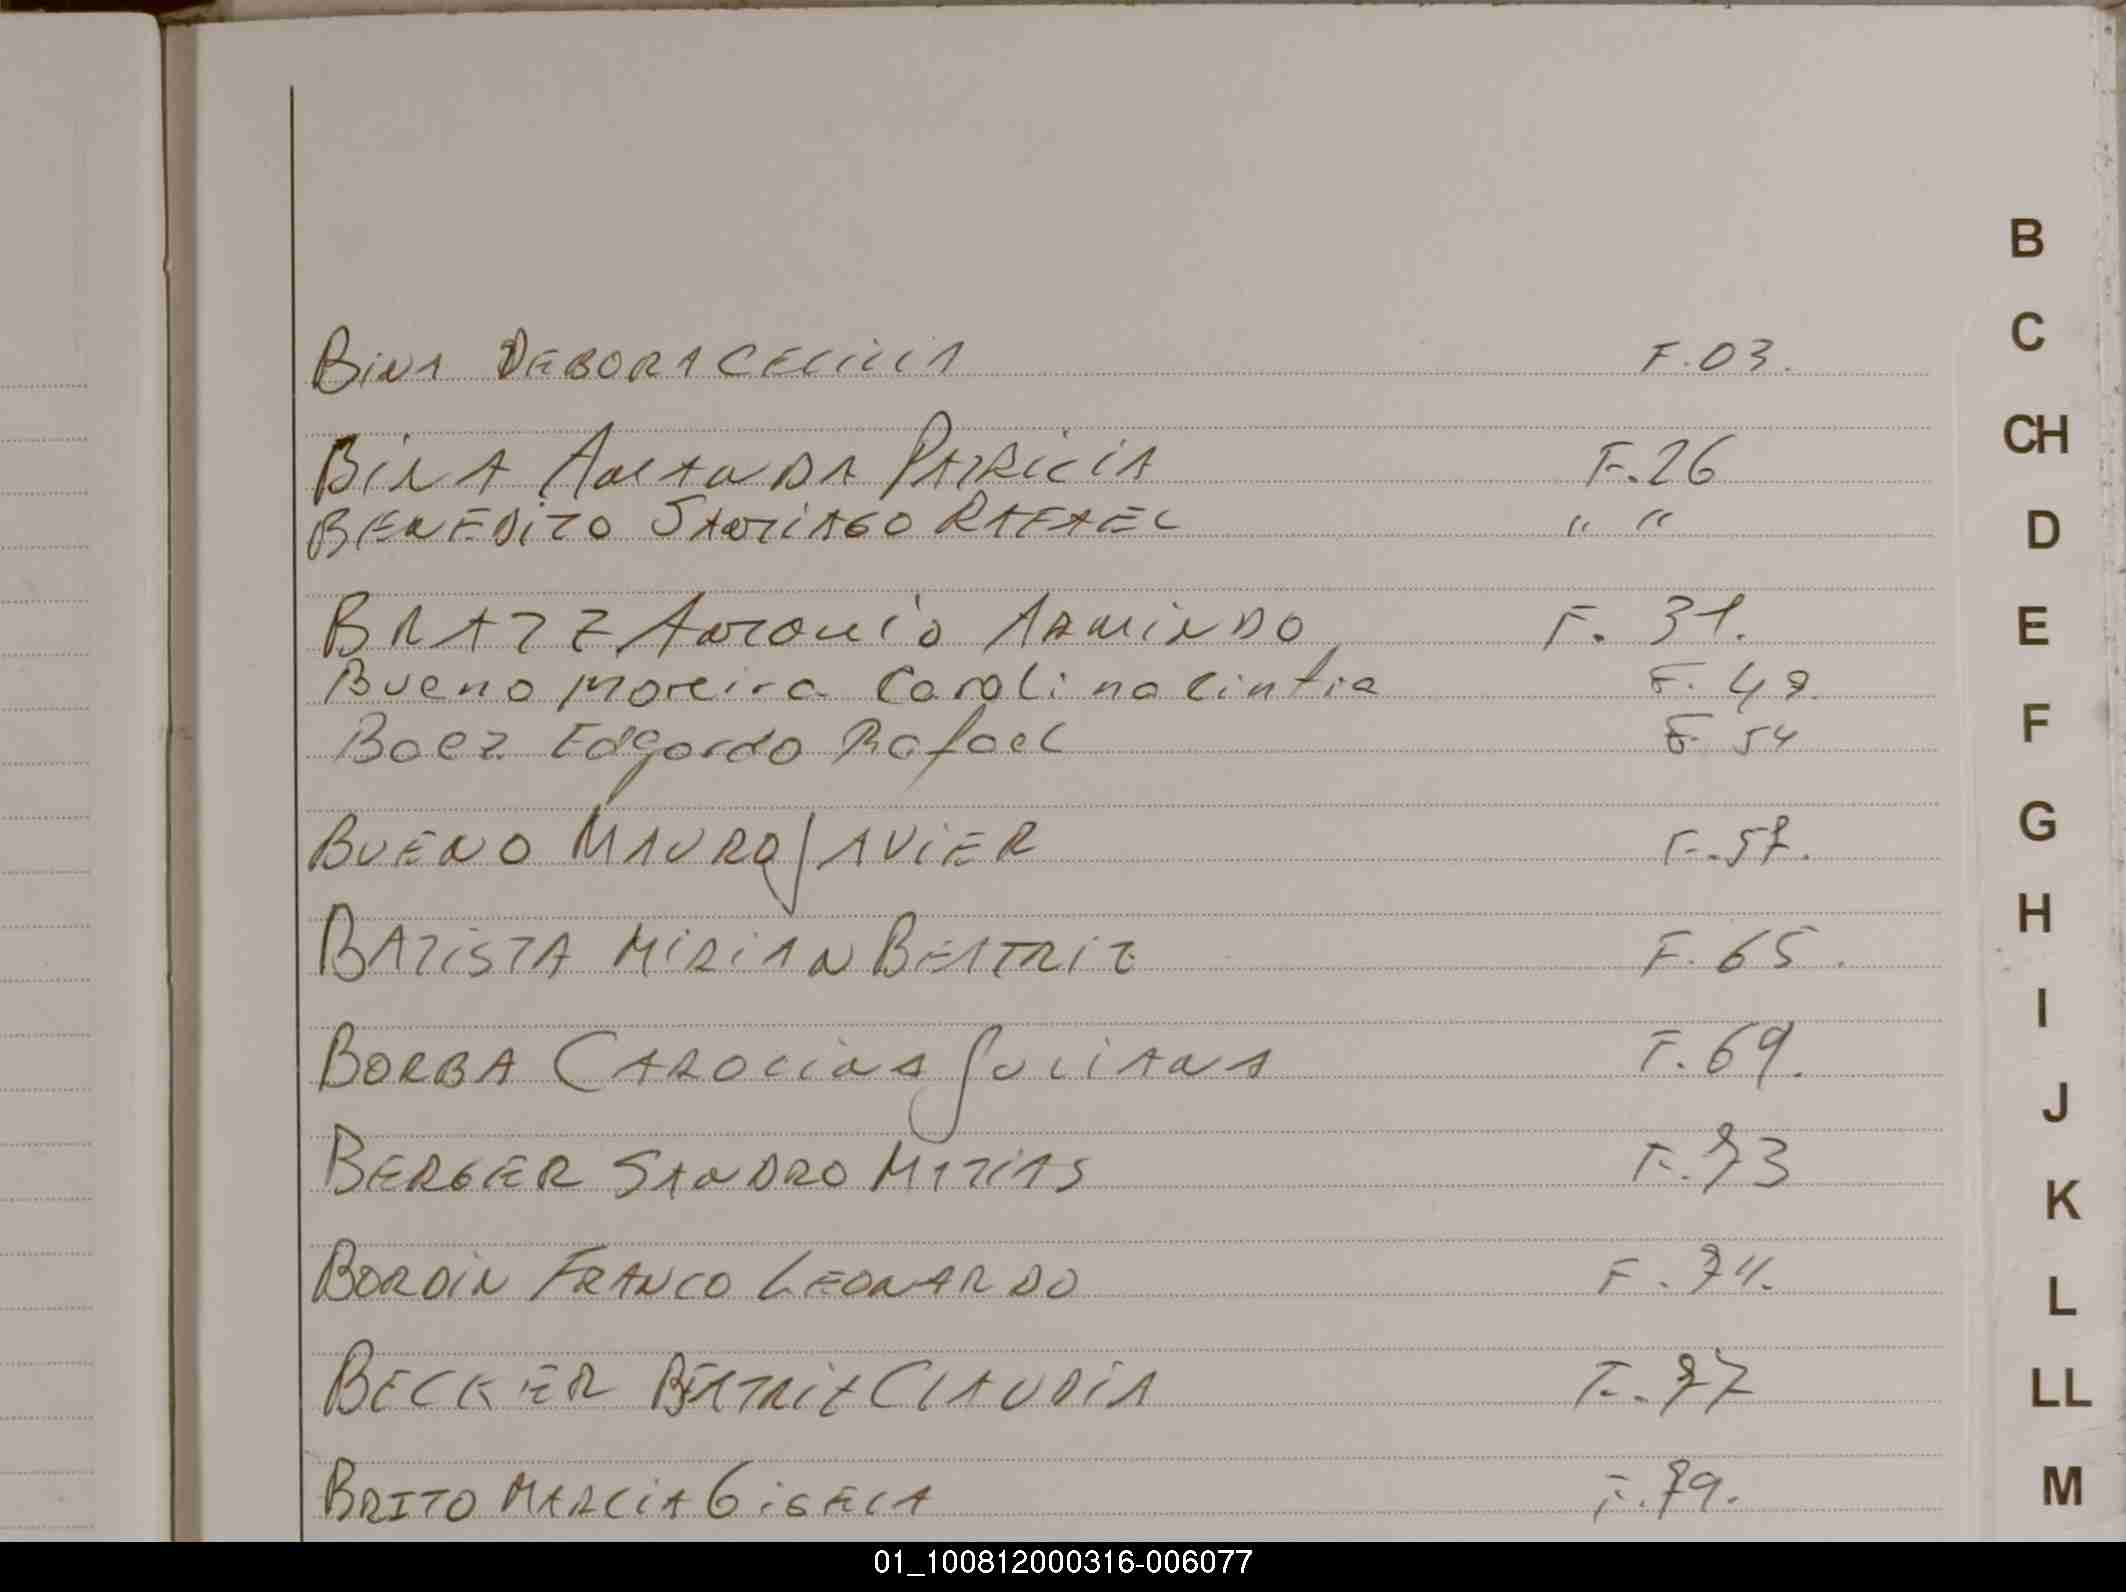 BINA DEBORA CECILIA F.03.
BINA AMANDA PATRICIA F.26
BENEDITO SANTIAGO RAFAEL " "
BRATZ ANTONIO ARMINDO F. 31.
Bueno Moreira Carolina Cintia F. 49.
Baez Edgardo Rafael F. 54
BUENO MAURO JAVIER F.57.
BATISTA MIRIAN BEATRIZ F. 65.
BORBA CAROLINA JULIANA F.69.
BERGER SANDRO MATIAS F.73
BORDIN FRANCO LEONARDO F.74.
BECKER BEATRIZ CLAUDIA F.77
BRITO MARCIA GISELA F.79.
B
C
CH
D
E
F
G
H
I
J
K
L
LL
M
01_100812000316-006077